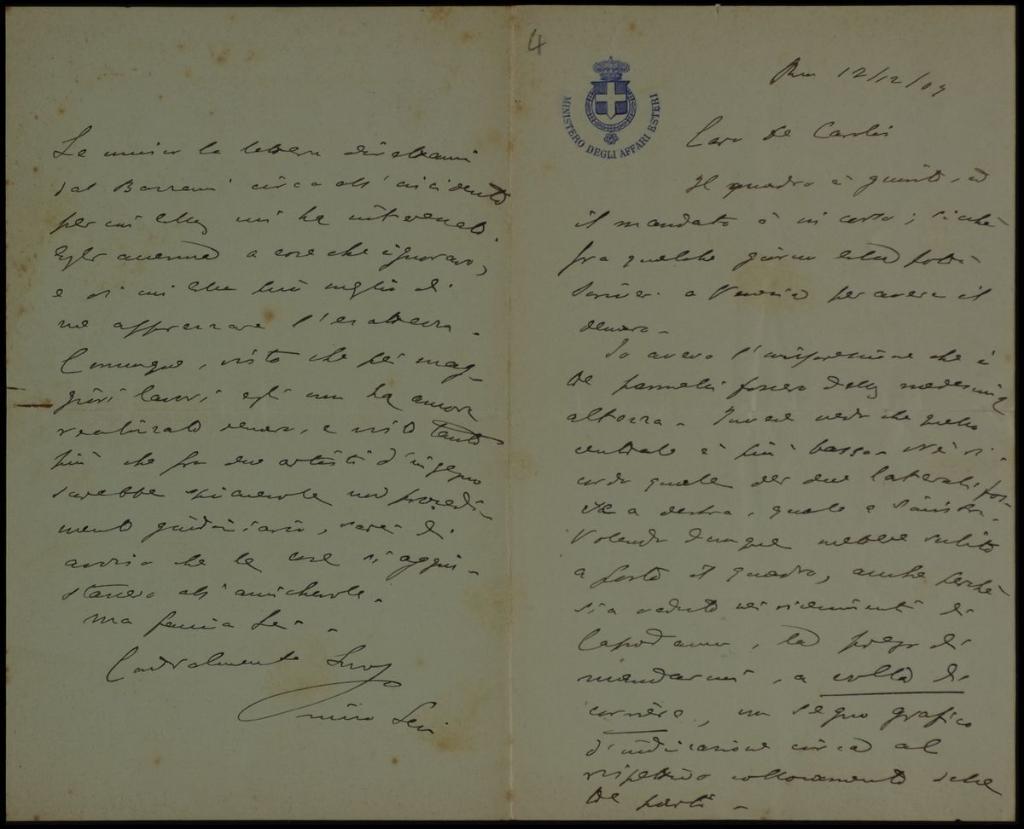 4
MINISTERO DEGLI AFFARI ESTERI
12/12/09
Caro De Carolis
Il quadro è giunto, ed
il mandato è in corso; sicché
fra qualche giorno Ella potrà
scrivere a Venezia per avere il
denaro.
Io avevo l'impressione che i
tre pannelli fossero della medesima
altezza. Invece vedo che quello
centrale è più basso. Né ri-
cordo quale dei due laterali fos-
se a destra, quale a sinistra.
Volendo dunque mettere subito
a posto il quadro, anche perché
sia veduto nei ricevimenti di
Capodanno, La prego di
mandarmi, a volta di
corriere, un segno grafico
d'indicazione circa al
rispettivo collocamento delle
tre parti.
Le unisco la lettera
dal circa all'incidente
per cui Ella mi ha interessato.
Egli accenna a cose che ignoravo,
e di cui Ella può meglio di
me apprezzare l'esattezza.
Comunque, visto che pei mag-
giori lavori egli non ha ancora
realizzato denaro, e visto tanto
più che fra due artisti d'ingegno
sarebbe spiacevole un procedi-
mento giudiziario, sarei di
avviso che le cose si aggiu-
stassero all'amichevole.
Ma faccia Lei.
Cordialmente Suo